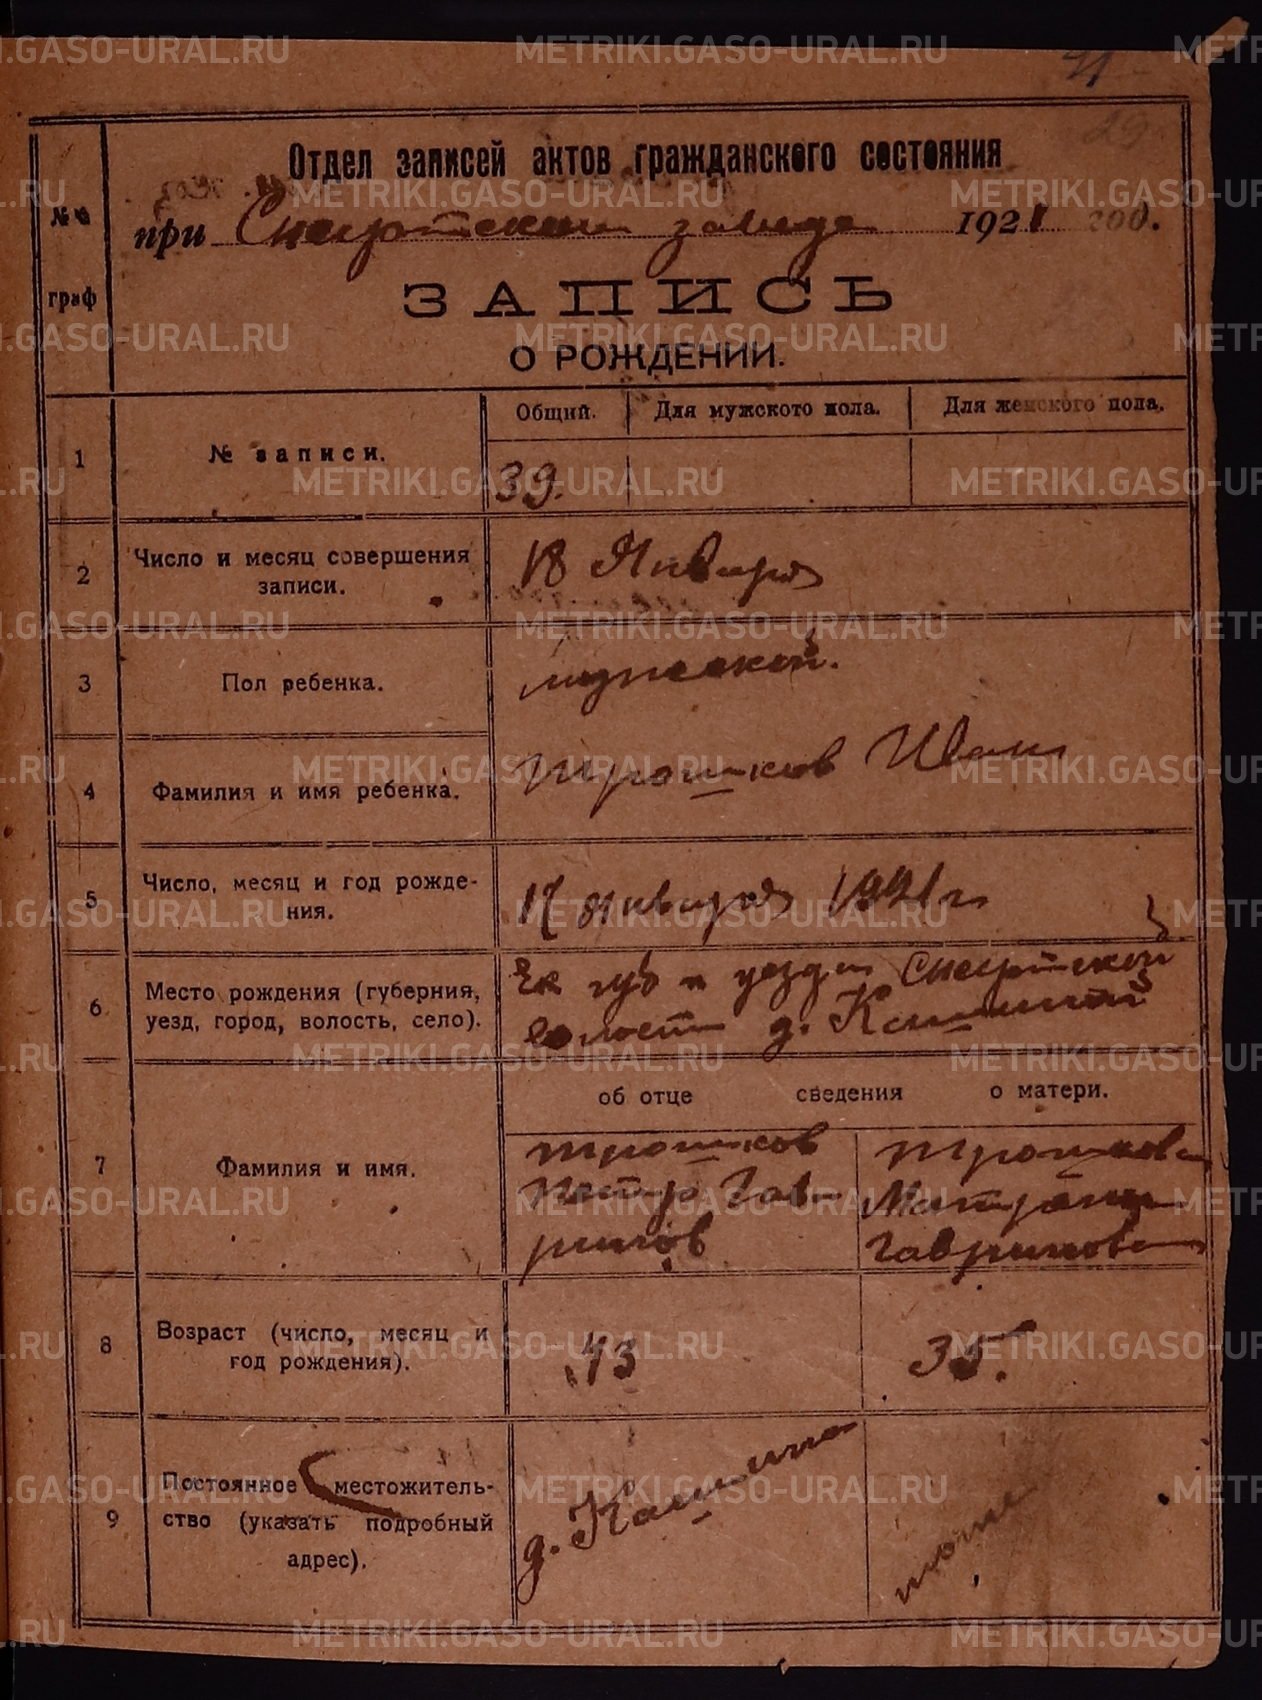 Отдел записей актов гражданского состояния
№№ граф
при Сысертском заводе 1921 год.
ЗАПИСЬ
О РОЖДЕНИИ.
Общий. Для мужского пола. Для женского пола.
1 № записи. 39.
2 Число и месяц совершения записи. 18 Января
3 Пол ребенка. мужской.
4 Фамилия и имя ребенка. Трошков Иван
5 Число, месяц и год рождения. 17 января 1921 г
6 Место рождения (губерния, уезд, город, волость, село). Ек губ и уезда Сысертской
волости д. Кашиной
об отце сведения о матери.
7 Фамилия и имя. Трошков Трошкова
Петр Гав Матрена
рилов Гавриловна
8 Возраст (число, месяц и год рождения). 43 35.
9 Постоянное местожительство (указать подробный адрес). д. Кашина
METRIKI.GASO-URAL.RU